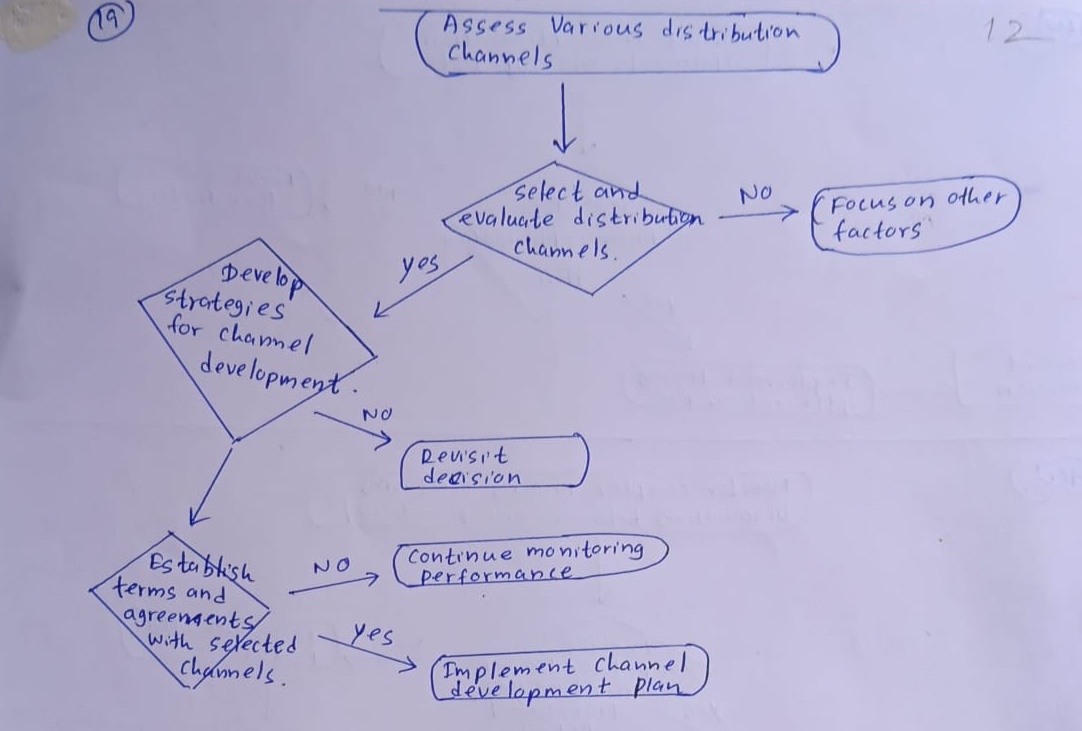 19
12
Assess Various distribution
channels
select and
evaluate distribution
channels.
NO
Focus on other
factors
yes
Develop
strategies
for channel
development.
NO
Revisit
decision
Establish
terms and
agreements
with selected
channels.
NO
Continue monitoring
performance
yes
Implement channel
development plan